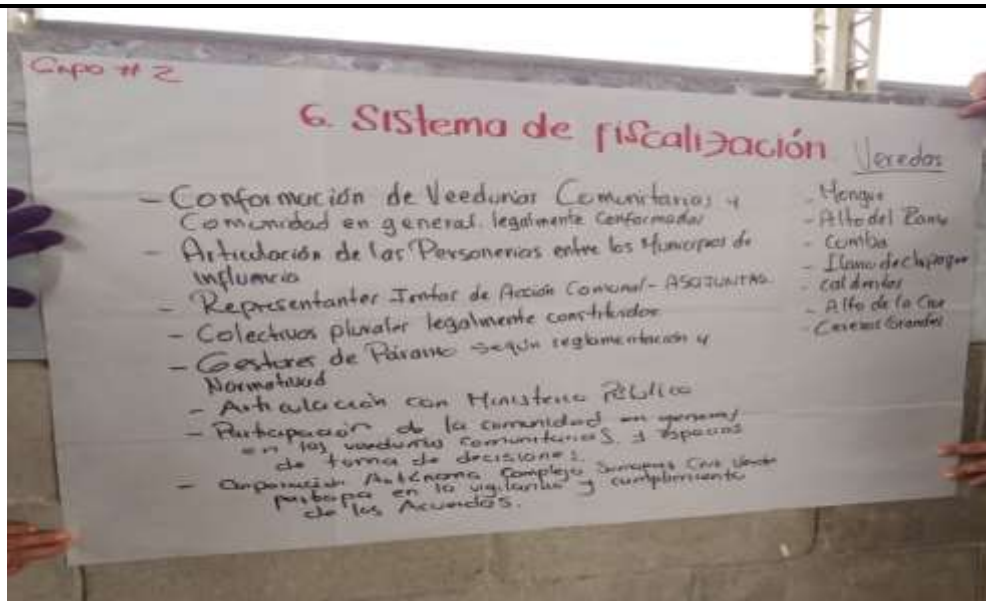 Grupo # 2
6. Sistema de fiscalización
- Conformación de Veedurias Comunitarias y
Comunidad en general. legalmente Conformadas
- Articulación de las Personerias entre los Municipios de
influencia
- Representantes Juntas de Acción Comunal - ASOJUNTAS.
- Colectivos plurales legalmente constituidos
- Gestores de Páramo según reglamentación y
Normatividad
- Articulación con Ministerio Público
- Participación de la comunidad en general
en las veedurias comunitarias y espacios
de toma de decisiones.
- Corporación Autónoma Complejo Sumapaz Cruz Verde
participa en la vigilancia y cumplimiento
de los Acuerdos.
Veredas
- Mengua
- Alto del Ramo
- Cumba
- Llano de chipaque
- Calderitas
- Alto de la Cruz
- Caseros Grandes